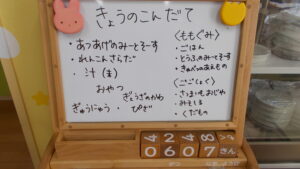 きょうのこんだて
・あつあげのみーとそーす
・れんこんさらだ
・汁(ま)
おやつ
ぎょうざのかわ
ぎゅうにゅう ・ ぴざ
〈ももぐみ〉
・ごはん
・とうふのみーとそーす
・きゅうりのあえもの
〈ごごしょく〉
・さつまいもおじや
・みそしる
・くだもの
4 2 4 8
0 6 0 7 きん